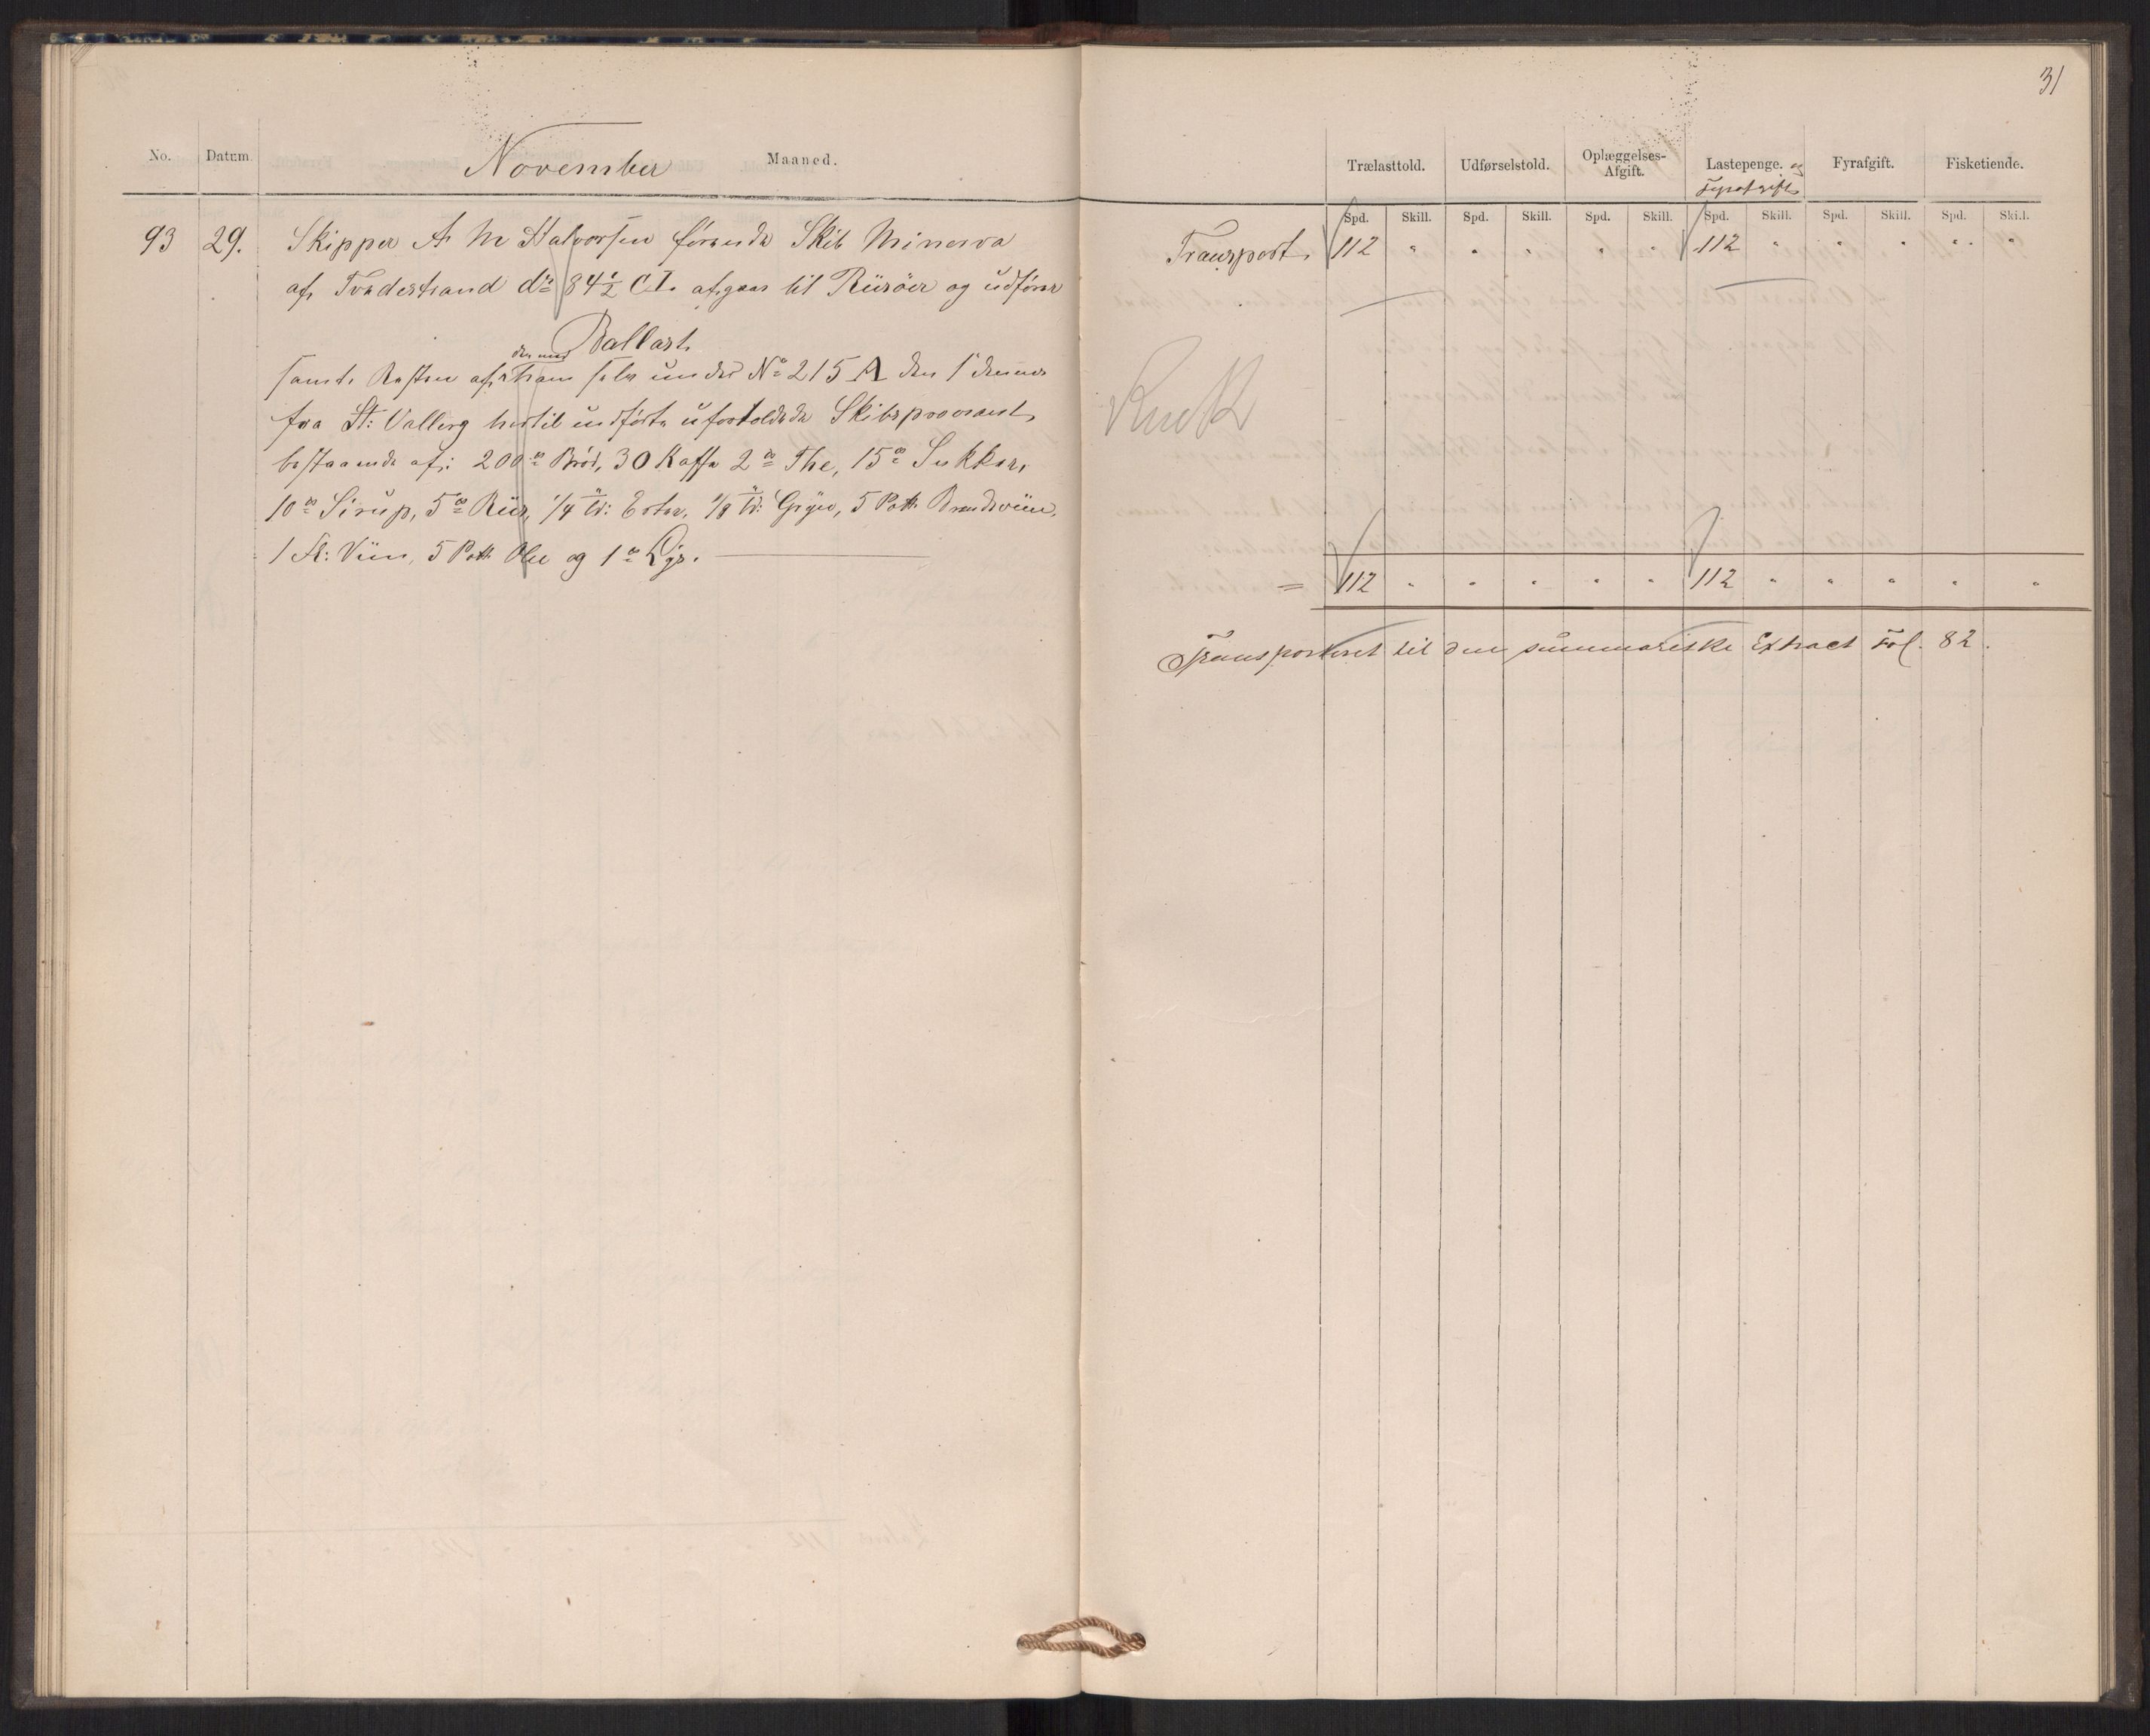 No. Datum. November Maaned.
93 29. Skipper A M Halvorsen førende Skib Minerva
af Tvedestrand dr: 84½ CL afgaar til Riisöer og udfører
Ballast
samt Resten af den med ham selv under No 215 A den 1 denne
fra St: Vallerg hertil indførte ufortoldede Skibsproviant
bestaaende af: 200 ℔ Brød, 30 Kaffe 2 ℔ The, 15 ℔ Sukker,
10 ℔ Sirup, 5 ℔ Riis, 1/4 Td: Erter, 1/8 Td: Gryn, 5 Pott Brændeviin,
1 Fl: Viin, 5 Pott Olie og 1 ℔ Lys.
31
Trælasttold. Udførselstold. Oplæggelses-Afgift. Lastepenge. og Fyrafgift Fyrafgift. Fisketiende.
Spd. Skill. Spd. Skill. Spd. Skill. Spd. Skill. Spd. Skill. Spd. Skill.
Transport 112 " " " " " 112 " " " " "
= 112 " " " " " 112 " " " " "
Transporteret til den summariske Extract Fol. 82.